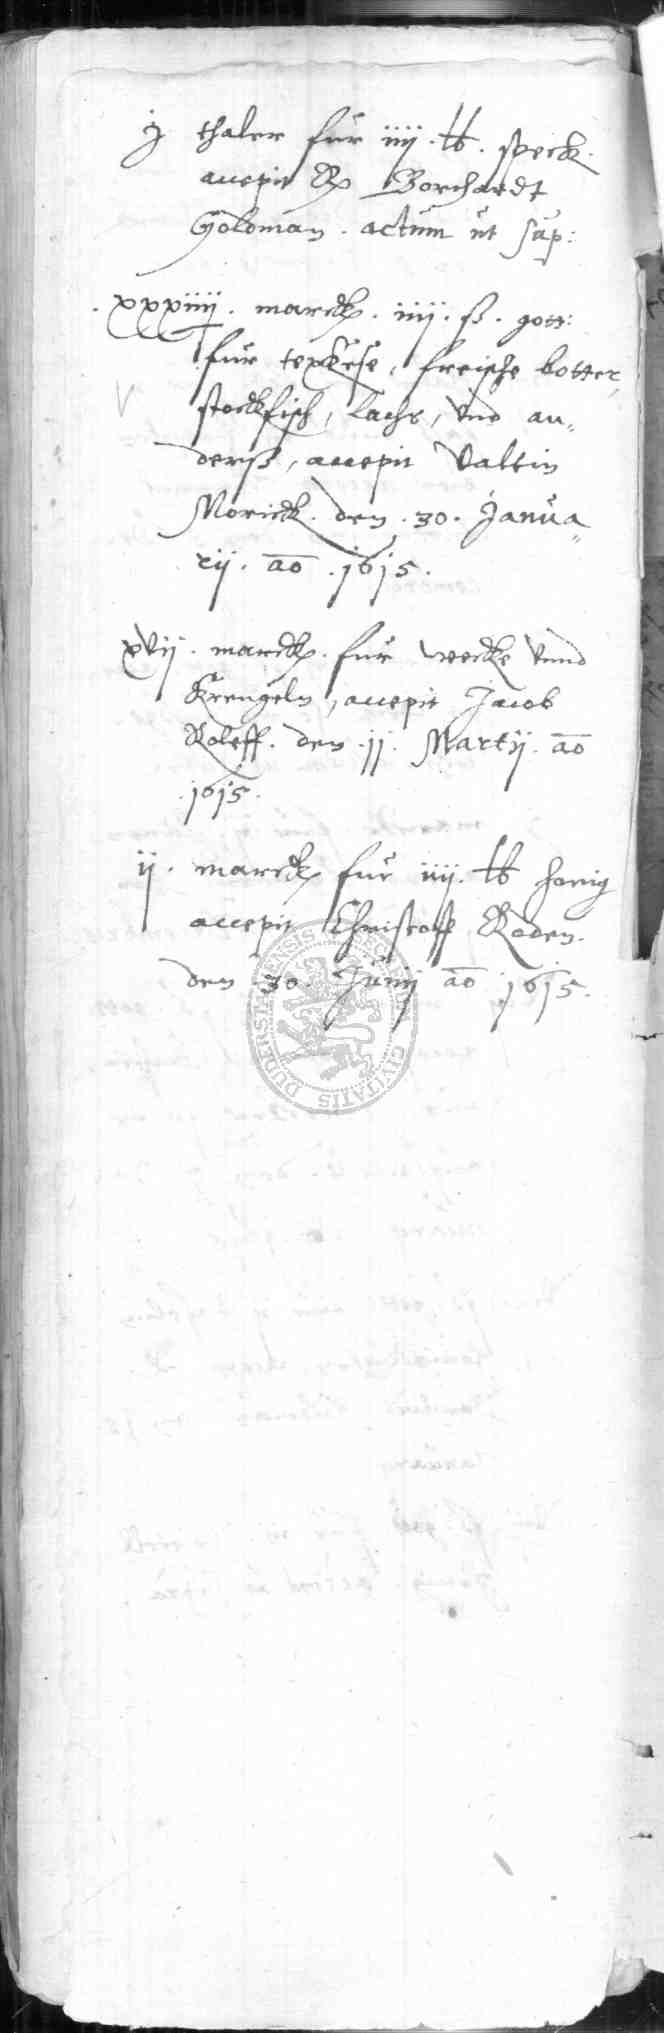 j thaler fur iiij. lb. speck.
accepit H Borchardt
Goldman. actum ut sup:
xxxiiij. marck. iiij. ß. gott:
fur texkese, freische botter,
stockfisch, lachs, vnd an„
derß, accepit Valtin
Morick. den. 30. Janua„
rij. ao. 1615.
xvij. marck. fur wecke vnnd
Krengeln, accepit Jacob
Roleff. den. 11. Martij. ao
1615.
ij. marck fur iiij. lb honig
accepit Christoff Roden.
den 30. Junij ao 1615.
DUDERSTADENSIS CIVITATIS